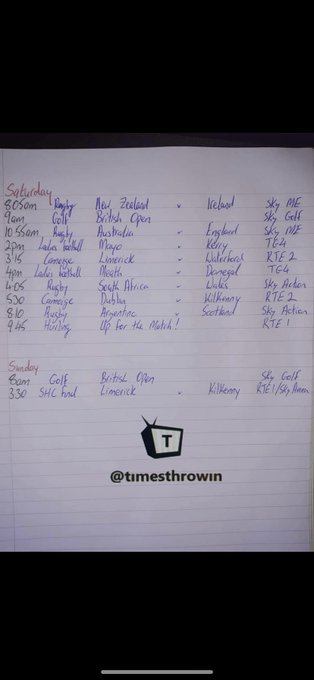 Saturday
8:05am Rugby New Zealand v Ireland Sky M/E
9am Golf British Open Sky Golf
10:55am Rugby Australia v England Sky M/E
2pm Ladies football Mayo v Kerry TG4
3:15 Camogie Limerick v Waterford RTE 2
4pm Ladies football Meath v Donegal TG4
4:05 Rugby South Africa v Wales Sky Action
5:30 Camogie Dublin v Kilkenny RTE 2
8:10 Rugby Argentina v Scotland Sky Action
9:45 Hurling Up for the Match! RTE 1
Sunday
8am Golf British Open Sky Golf
3:30 SHC final Limerick v Kilkenny RTE1/Sky Arena
T
@timesthrowin